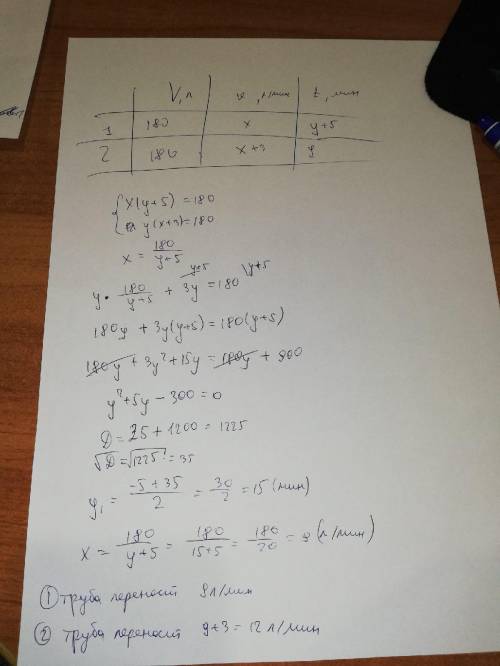 V, л v, л/мин t, мин
1 180 x y+5
2 180 x+3 y
{ x(y+5) = 180
y(x+3) = 180
x = 180/(y+5)
y · 180/(y+5) + 3y = 180 \y+5
180y + 3y(y+5) = 180(y+5)
180y + 3y² + 15y = 180y + 900
y² + 5y - 300 = 0
D = 25 + 1200 = 1225
√D = √1225 = 35
y₁ = (-5+35)/2 = 30/2 = 15 (мин)
x = 180/(y+5) = 180/(15+5) = 180/20 = 9 (л/мин)
① труба переносит 9 л/мин
② труба переносит 9+3 = 12 л/мин